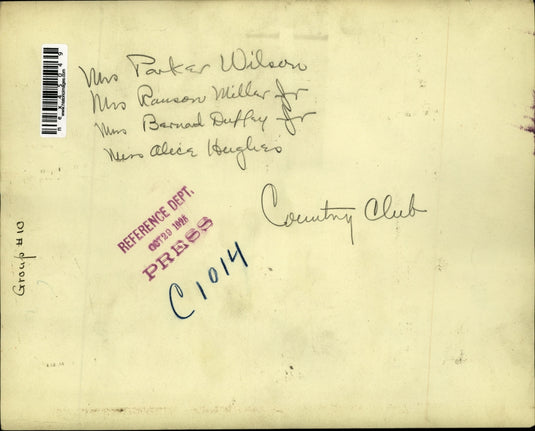 Mrs Parker Wilson
Mrs Ranson Miller Jr
Mrs Bernad Duffey Jr
Miss Alice Hughes
Country Club
REFERENCE DEPT.
OCT 20
PRESS
C1014
Group #10